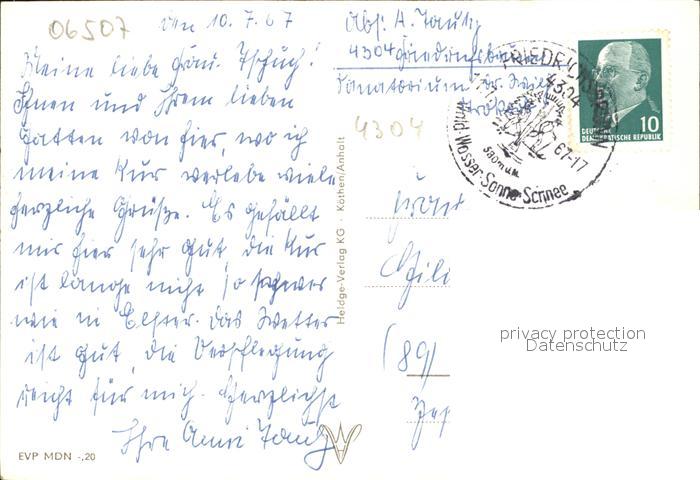 06507
den 10.7.67
Meine liebe Frau Tschuch!
Ihnen und Ihrem lieben
Gatten von hier, wo ich
meine Kur verlebe viele
herzliche Grüße. Es gefällt
mir hier sehr gut, die Kur
ist lange nicht so schwer
wie in Elster. Das Wetter
ist gut, die Verpflegung
reicht für mich. Herzlichst
Ihre Anni Taub
EVP MDN -,20
Heldge-Verlag KG · Köthen/Anholt
Abs. A. Taub
4304 Friedrichsbrunn
Sanatorium
4304
FRIEDRICHSBRUNN
4304
67-17
Wald Wasser-Sonne-Schnee
DEUTSCHE
DEMOKRATISCHE REPUBLIK 10
Frau
(89)
privacy protection
Datenschutz